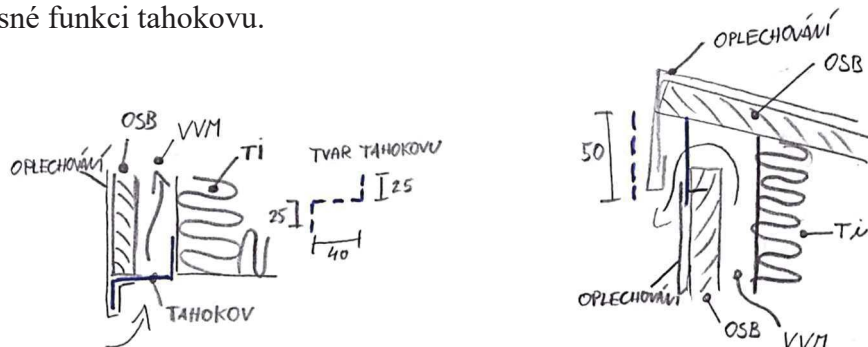 sné funkci tahokovu.
OPLECHOVÁNÍ
OSB
VVM
TI
TVAR TAHOKOVU
25
25
40
TAHOKOV
OPLECHOVÁNÍ
OSB
50
Ti
OPLECHOVÁNÍ
OSB
VVM